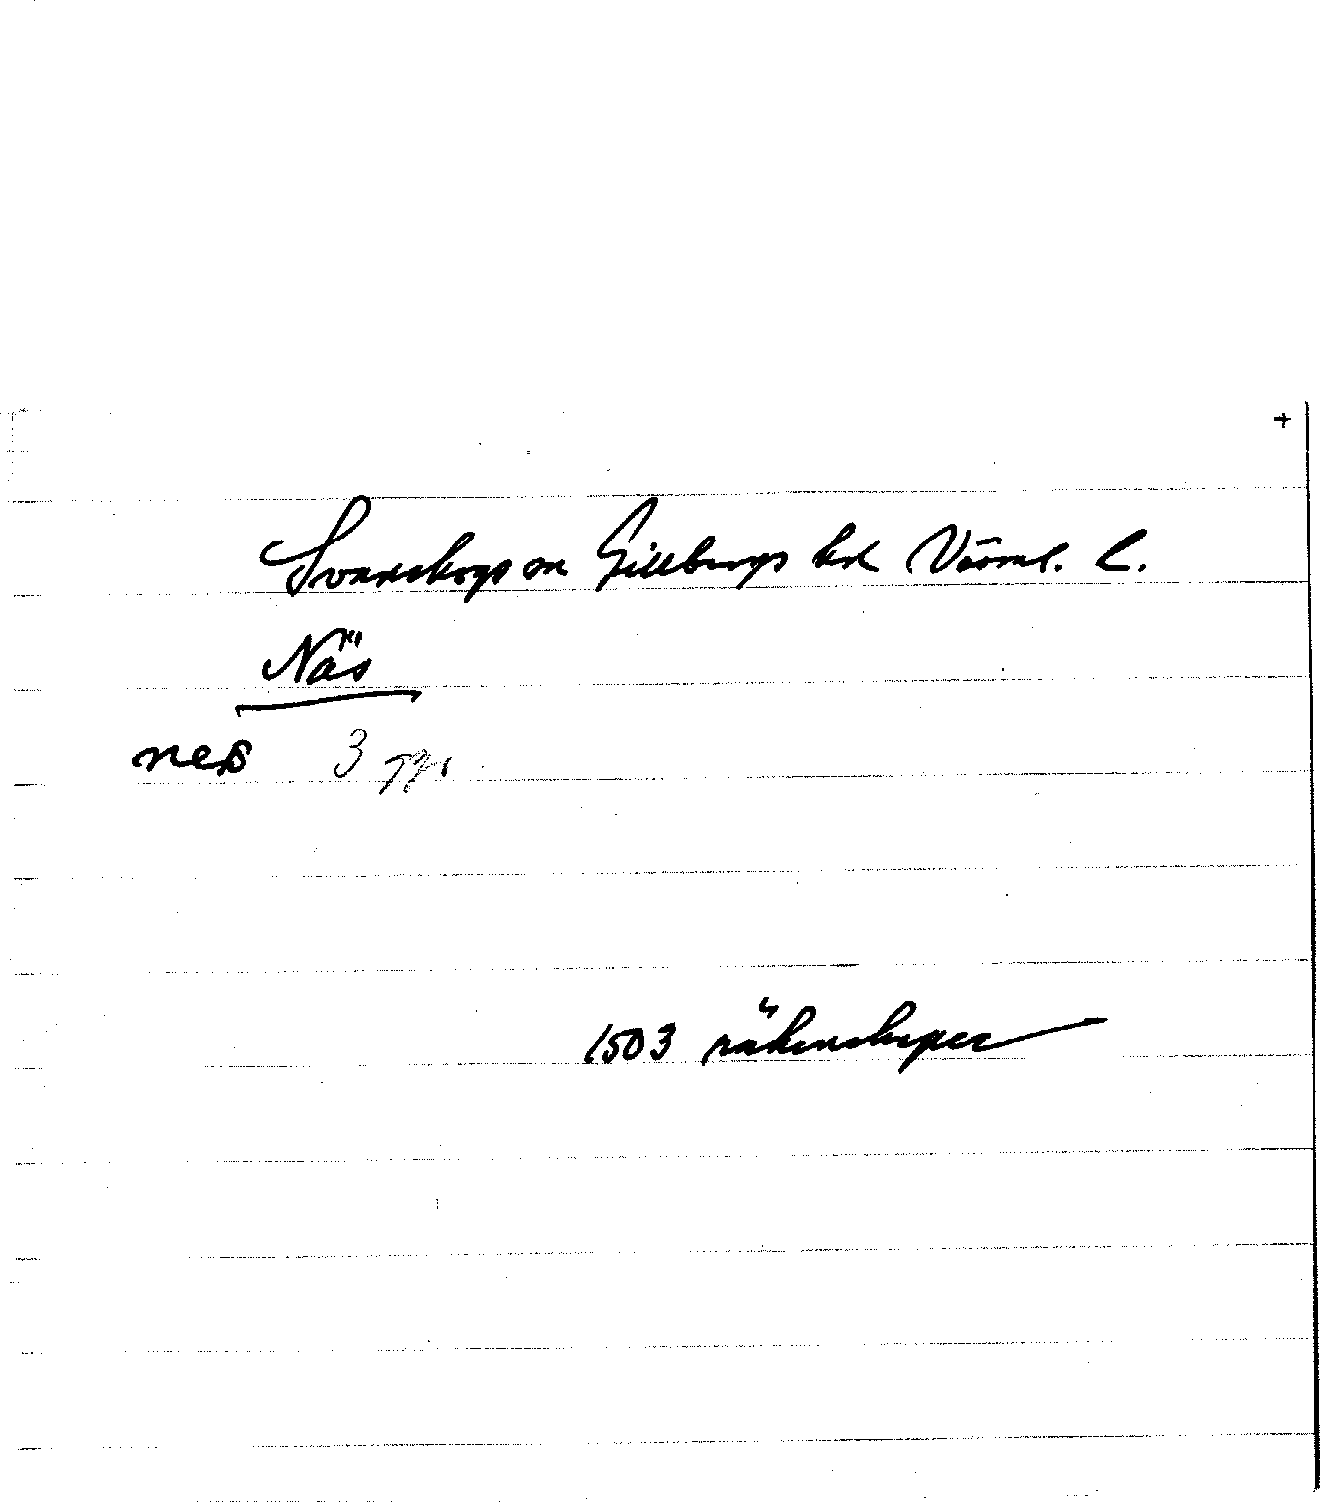 +
Svanskogs sn Gillbergs hd Värml. l.
Näs
neß 3 ggr
1503 räkenskaper